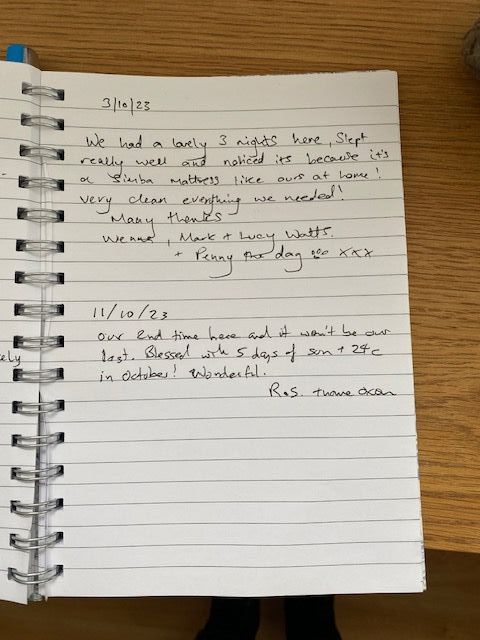 3/10/23
We had a lovely 3 nights here, Slept
really well and noticed its because it's
a Simba mattress like ours at home!
very clean everything we needed!
Many thanks
, Mark + Lucy Watts.
+ Penny the dog xxx
11/10/23
Our 2nd time here and it won't be our
last. Blessed with 5 days of sun + 24c
in October! Wonderful.
R.S. Thame Oxon
ely